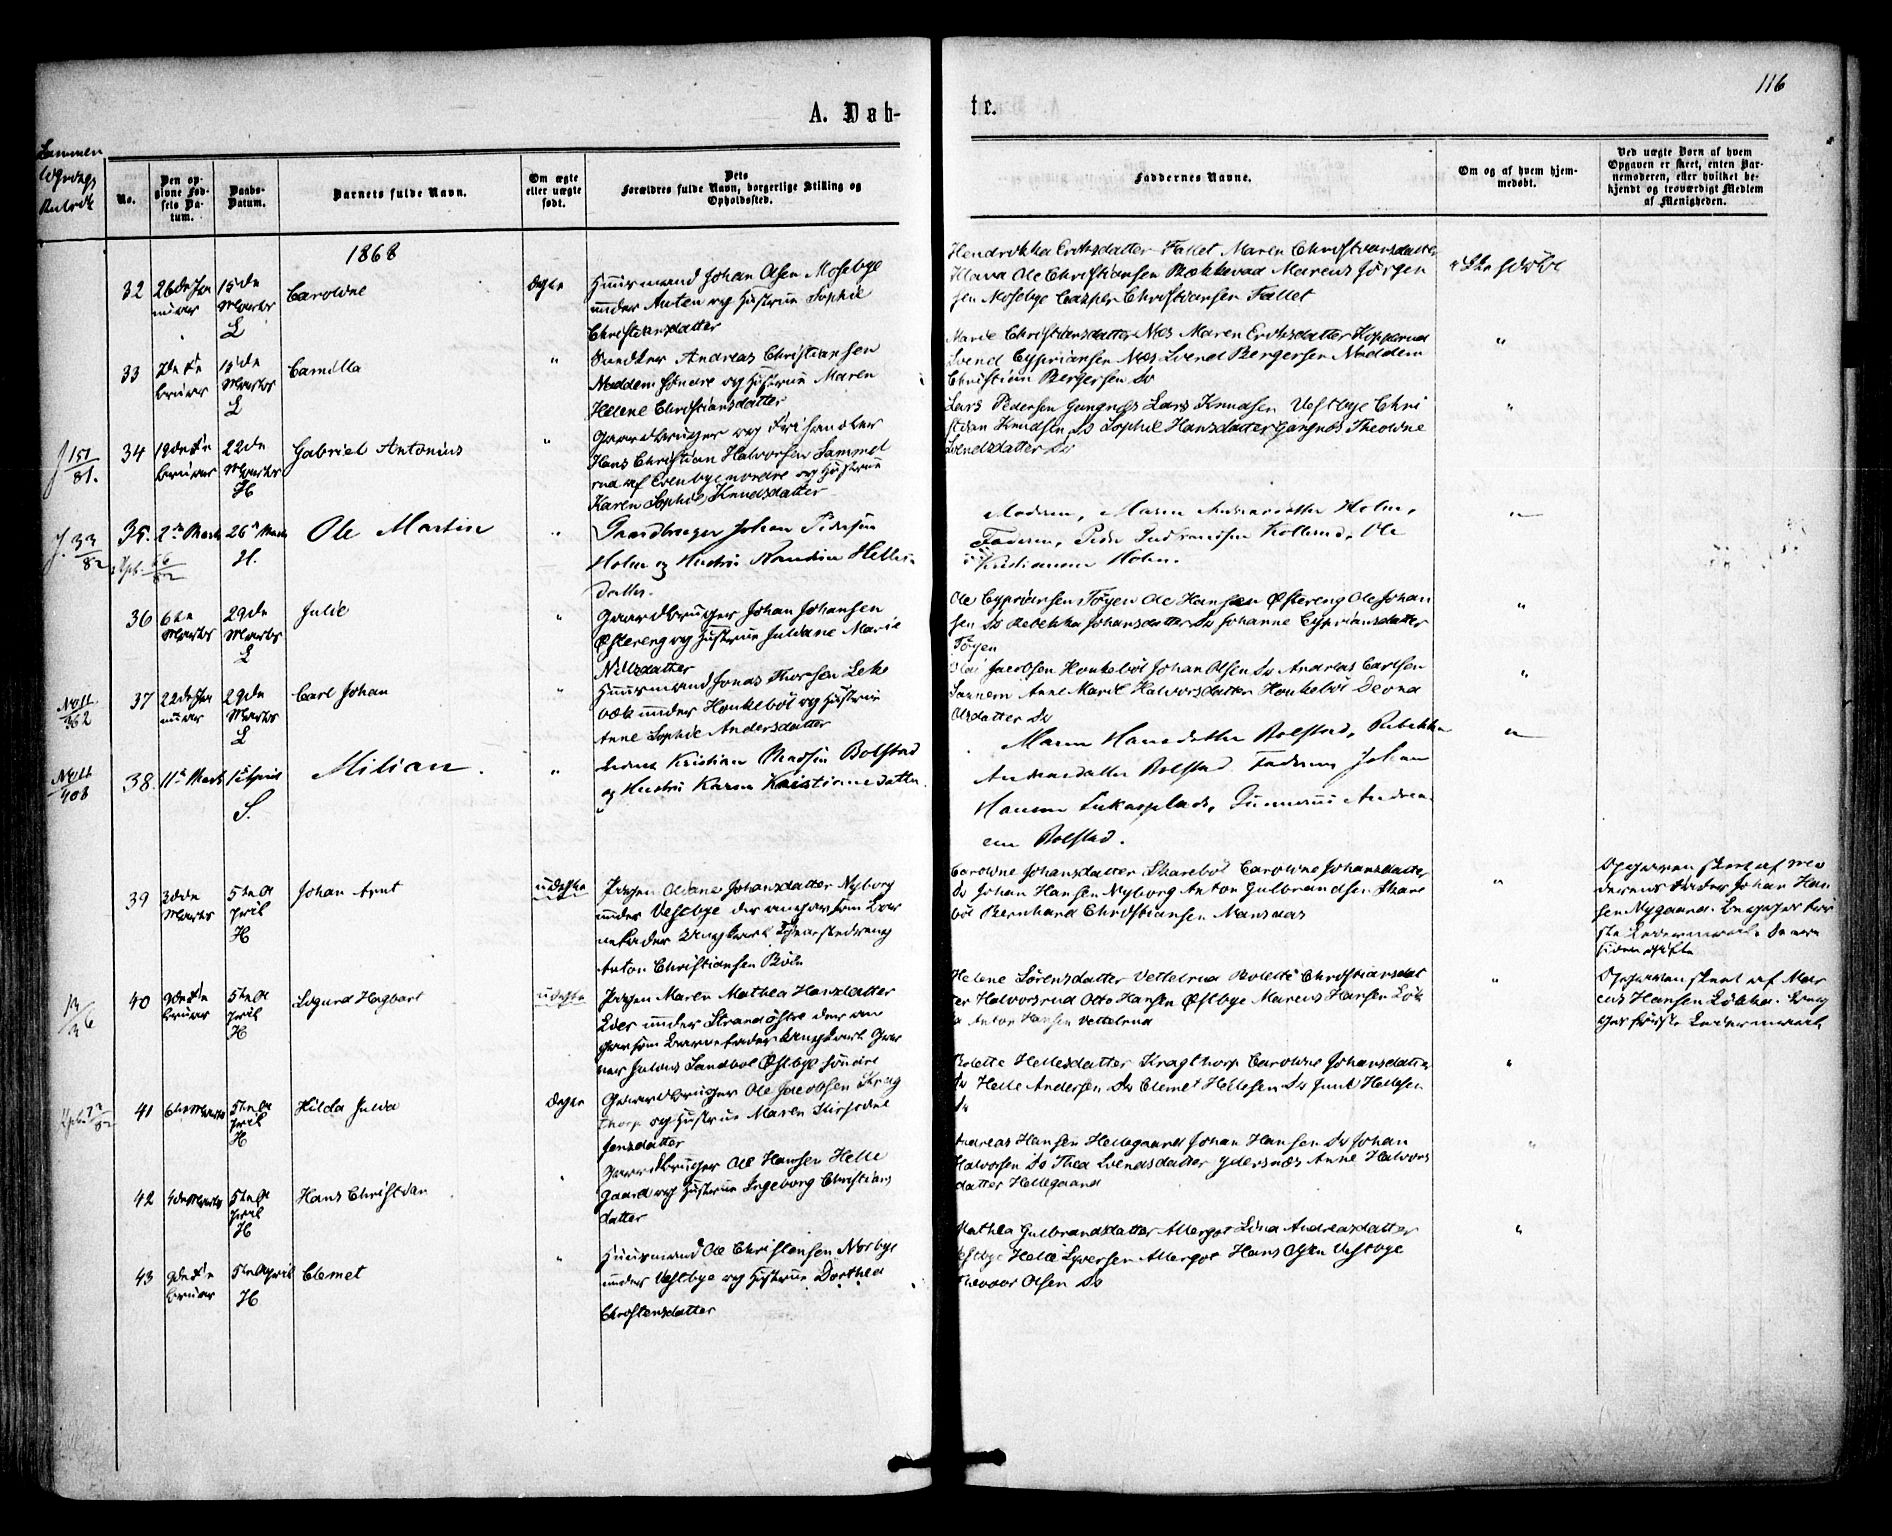 116
A. Døb-
te.
No.
Den op-
givne Fød-
sels Da-
tum.
Daabs-
Datum.
Barnets fulde Navn.
Om ægte
eller uægte
født.
Dets
Forældres fulde Navn, borgerlige Stilling og
Opholdssted.
Faddernes Navne.
Om og af hvem hjem-
medøbt.
Ved uægte Børn af hvem
Opgaven er skeet, enten Bar-
nemoderen, eller hvilket be-
kjendt og troværdigt Medlem
af Menigheden.
1868
32
26de Ja
nuar
15de
Marts
L
Caroline
Ægte
Huusmand Johan Olsen Mosebye
under Anten og Hustrue Sophie
Christiansdatter
Hendrikka Eriksdatter Fallet Maren Christiansdatter
Ole Christiansen Bækkevad Marens Jørgen
sen Mosebye Casper Christiansen Fallet
33
15de
Marts
L
Camilla
"
Snedker Andreas Christiansen
Noddem søndre og Hustrue Maren
Helene Christiansdatter
Marie Christiansdatter Næs Maren Eriksdatter Kopperud
Svend Cypriansen Næs Svend Bergersen Noddem
Christian Bergersen Do
"
J 151
81.
34
19de Fe
bruar
22de
Marts
H
Gabriel Antonius
"
Gaardbruger og Frihandler
Hans Christian Halvorsen Sammel
rud af Evenbye nordre og Hustrue
Karen Sophie Knudsdatter
Lars Pedersen Gangnæs Lars Knudsen Vestbye Chri
stian Knudsen Do Sophie Hansdatter Gangnæs Theoline
Svendsdatter Do
"
J. 33
82
35.
2den Marts
26de Marts
H.
Ole Martin
"
Gaardbruger Johan Pedersen
Holm og Hustru Randin Helles-
datter.
Moderen, Maren Andreasdatter Holm,
Faderen, Peder Gudmundsen Kollerud, Ole
Kristiansen Holm.
"
36
6te
Marts
29de
Marts
L
Julie
"
Gaardbruger Johan Johansen
Østereng og Hustrue Juliane Marie
Nilsdatter
Ole Cypriansen Tøyen Ole Hansen Østereng Ole Johan
sen Do Rebekka Johansdatter Do Johanne Cypriansdatter
Tøyen
"
Natt.
362
37
22de Ja
nuar
29de
Marts
L
Carl Johan
"
Huusmand Jonas Thorsen Leke
bæk under Honkebøl og Hustrue
Anne Sophie Andersdatter
Jacobsen Honkebøl Johan Olsen Do Andreas Carlsen
Sannem Anne Marie Halvorsdatter Honkebøl Deona
Olsdatter Do
"
Natt
408
38.
11te Marts
1ste April
S.
Milian.
"
Kristian Madsen Bolstad
og Hustru Karen Kristiansdatter.
Maren Hansdatter Bolstad, Rebekka
Andreasdatter Bolstad. Faderen, Johan
Hansen Lukasplads, Gunnerius Andrea
sen Bolstad.
"
39
3die
Marts
5te A
pril
H
Johan Arnt
uægte
Pigen Oliane Johansdatter Nyborg
under Vestbye der angav som Bar
nefader Ungkarl
Anton Christiansen Bøle
Caroline Johansdatter Skarebøl Caroline Johansdatter
Do Johan Hansen Nyborg Anton Gulbrandsen Skare
bøl Bernhard Christiansen Mansaas
"
Opgaven skeet af Mo
derens Fader Johan Han
sen Nygaard. Begges før
ste Leiermaal.
13
36
40
9de Fe
bruar
5te A
pril
H
Sigurd Hagbart
uægte
Pigen Maren Mathea Hansdatter
Eies under Strand østre der an
gav som Barnefader Ungkarl Gun
nar Julius Sandbøl Østbye søndre
Helene Sørensdatter Vettelrud Bolette Christiansdat
ter Halvorsrud Otto Hansen Østbye Marius Hansen Løk
Anton Hansen Vettelrud
"
Opgaven skeet af Mar
cus Hansen Løkka. Beg
ges første Leiermaal.
41
6te Marts
5te A
pril
H
Hilda Julia
Ægte
Gaardbruger Ole Jacobsen Krag
thorp og Hustrue Maren
Jensdatter
Bolette Hellesdatter Kragthorp Caroline Johansdatter
Do Helle Andersen Do Clemet Hellesen Do Juul Hellesen
Do
"
42
4de Marts
5te A
pril
H
Hans Christian
"
Gaardbruger Ole Hansen Helle
gaard og Hustrue Ingeborg Christians
datter
Andreas Hansen Hellegaard Johan Hansen Do Johan
Halvorsen Do Thea Svendsdatter Ydersnæs Anne Halvors
datter Hellegaard
"
43
9de Fe
bruar
5te April
H
Clemet
"
Huusmand Ole Christensen Norbye
under Vestbye og Hustrue Dorthea
Christensdatter
Mathea Gulbrandsdatter Allergot Lina Andreasdatter
Østbye Helle Syversen Allergot Hans Olsen Vestbye
Theodor Olsen Do
"